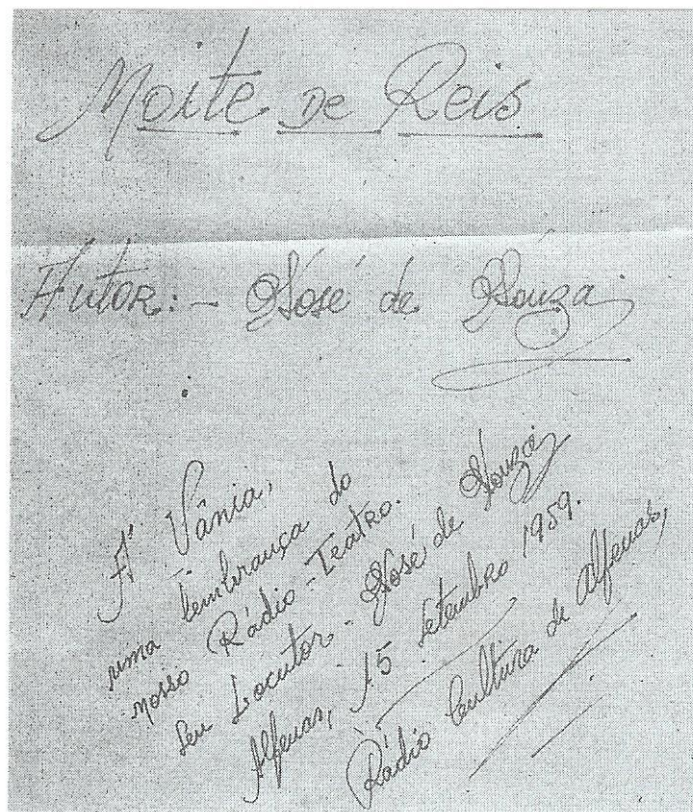 Noite De Reis
Autor:- José de Souza
À Vânia,
uma lembrança do
nosso Rádio-Teatro.
Seu Locutor - José de Souza
Alfenas, 15 Setembro 1959.
Rádio Cultura de Alfenas,